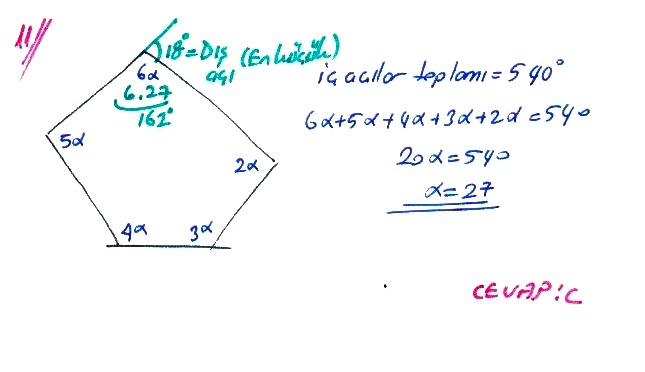 11)
18° = Dış açı (En küçük)
6α
6.27
162°
5α
2α
4α
3α
iç açılar toplamı = 540°
6α+5α+4α+3α+2α = 540
20α = 540
α = 27
CEVAP: C